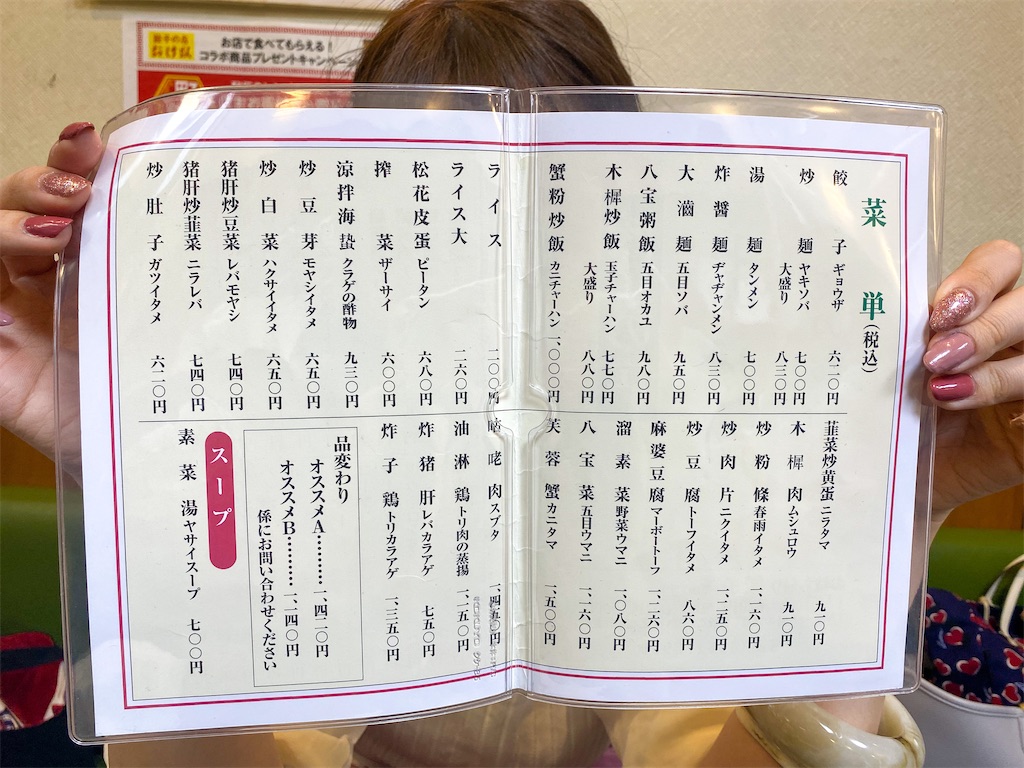 お店で食べてもらえる!
コラボ商品プレゼントキャンペーン
菜単(税込)
餃子 ギョウザ 六二〇円
炒麺 ヤキソバ 七〇〇円
大盛り 八三〇円
湯麺 タンメン 七〇〇円
炸醤麺 ヂャヂャンメン 八三〇円
大滷麺 五目ソバ 九五〇円
八宝粥飯 五目オカユ 九八〇円
木樨炒飯 玉子チャーハン 七七〇円
大盛り 八八〇円
蟹粉炒飯 カニチャーハン 一、〇〇〇円
ライス 二〇〇円
ライス大 二六〇円
松花皮蛋 ピータン 六八〇円
搾菜 ザーサイ 六〇〇円
涼拌海蜇 クラゲの酢物 九三〇円
炒豆芽 モヤシイタメ 六五〇円
炒白菜 ハクサイイタメ 六五〇円
猪肝炒豆菜 レバモヤシ 七四〇円
猪肝炒韮菜 ニラレバ 七四〇円
炒肚子 ガツイタメ 六二〇円
韮菜炒黄蛋 ニラタマ 九一〇円
木樨肉 ムシュロウ 九一〇円
炒粉條 春雨イタメ 一、一六〇円
炒肉片 ニクイタメ 一、二五〇円
炒豆腐 トーフイタメ 八六〇円
麻婆豆腐 マーボートーフ 一、二六〇円
溜素菜 野菜ウマニ 一、〇八〇円
八宝菜 五目ウマニ 一、一六〇円
芙蓉蟹 カニタマ 一、五〇〇円
咾肉 スブタ 一、四五〇円
油淋鶏 トリ肉の蒸揚 一、一五〇円
炸猪肝 レバカラアゲ 七五〇円
炸子鶏 トリカラアゲ 一、三五〇円
品変わり
オススメA………… 一、四二〇円
オススメB………… 一、二四〇円
係にお問い合わせください
スープ
素菜湯 ヤサイスープ 七〇〇円